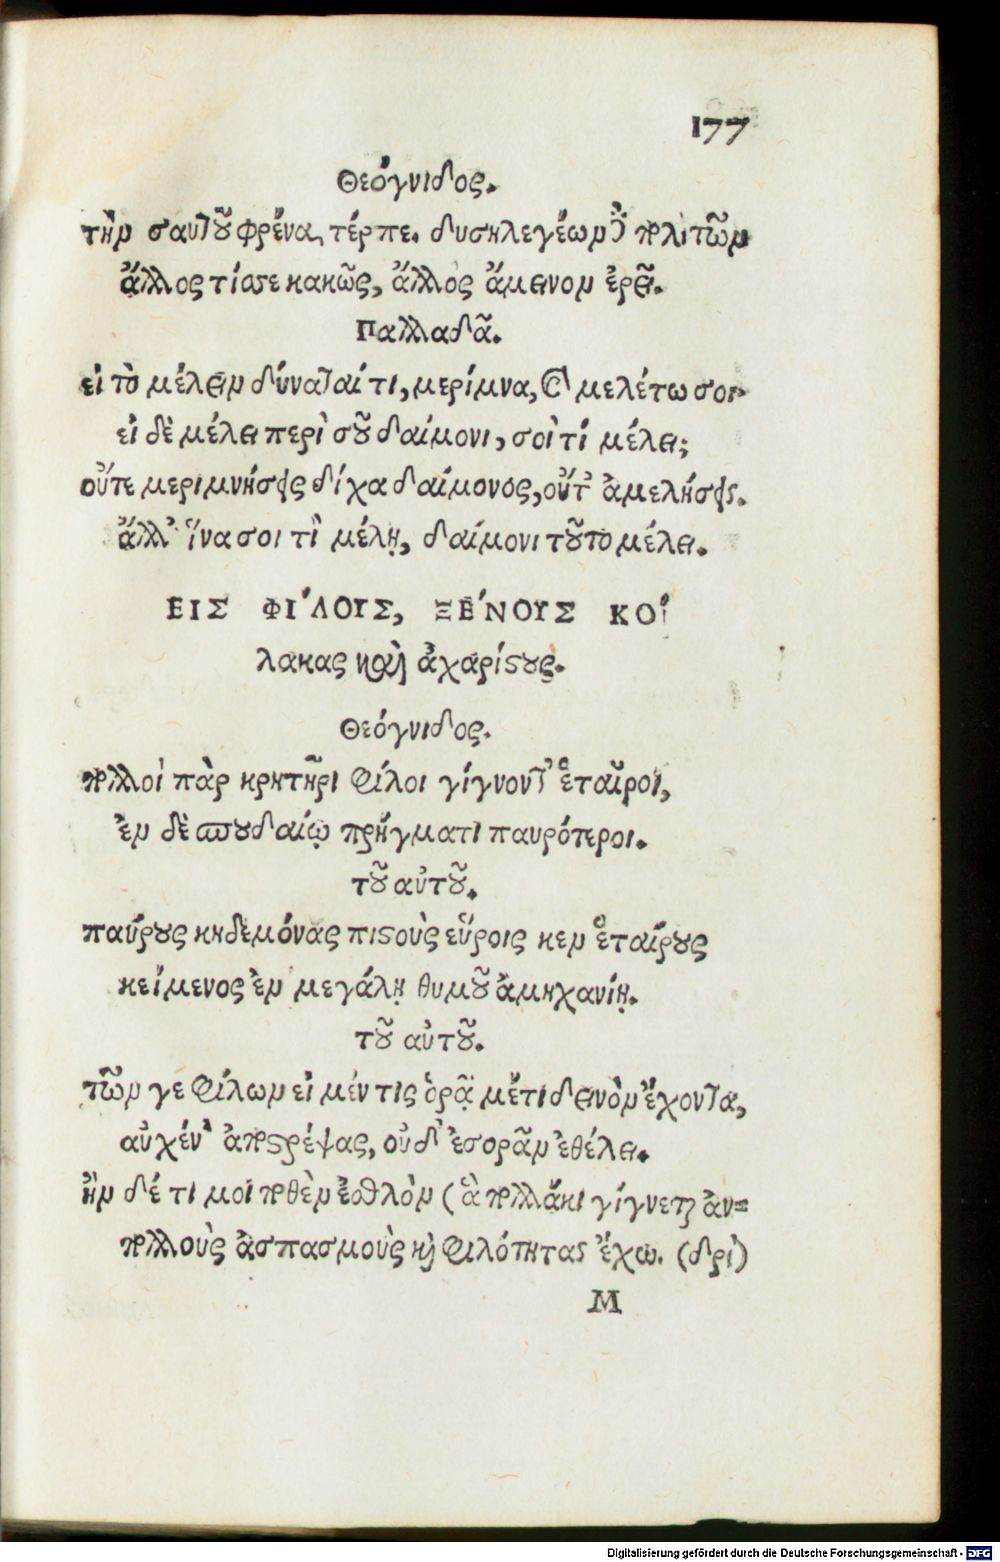 177
Θεόγνιδος.
τὴν σαυτοῦ φρένα, τέρπε. δυσηλεγέων δὲ πολιτῶν
ἄλλος τίς σε κακῶς, ἄλλος ἄμεινον ἐρεῖ.
Παλλαδᾶ.
εἰ τὸ μέλειν δύναταί τι, μερίμνα, καὶ μελέτω σοι·
εἰ δὲ μέλει περὶ σοῦ δαίμονι, σοὶ τί μέλει;
οὔτε μεριμνήσεις δίχα δαίμονος, οὔτ' ἀμελήσεις.
ἄλλ' ἵνα σοι τὶ μέλῃ, δαίμονι τοῦτο μέλει.
ΕΙΣ ΦΙ'ΛΟΥΣ, ΞΕ'ΝΟΥΣ ΚΟ'
λακας καὶ ἀχαρίστους.
Θεόγνιδος.
πολλοὶ πὰρ κρητῆρι φίλοι γίγνονται ἑταῖροι,
ἐν δὲ σπουδαίῳ πρήγματι παυρότεροι.
τοῦ αὐτοῦ.
παύρους κηδεμόνας πιστοὺς εὕροις κεν ἑταίρους
κείμενος ἐν μεγάλῃ θυμοῦ ἀμηχανίῃ.
τοῦ αὐτοῦ.
τῶν γε φίλων εἰ μέν τις ὁρᾷ μέ τι δεινὸν ἔχοντα,
αὐχέν' ἀποστρέψας, οὐδ' ἐσορᾶν ἐθέλει.
ἢν δέ τι μοι ποθὲν ἐσθλὸν (ἃ πολλάκι γίγνεται ἀν=
πολλοὺς ἀσπασμοὺς καὶ φιλότητας ἔχω. (δρὶ)
M
Digitalisierung gefördert durch die Deutsche Forschungsgemeinschaft - DFG